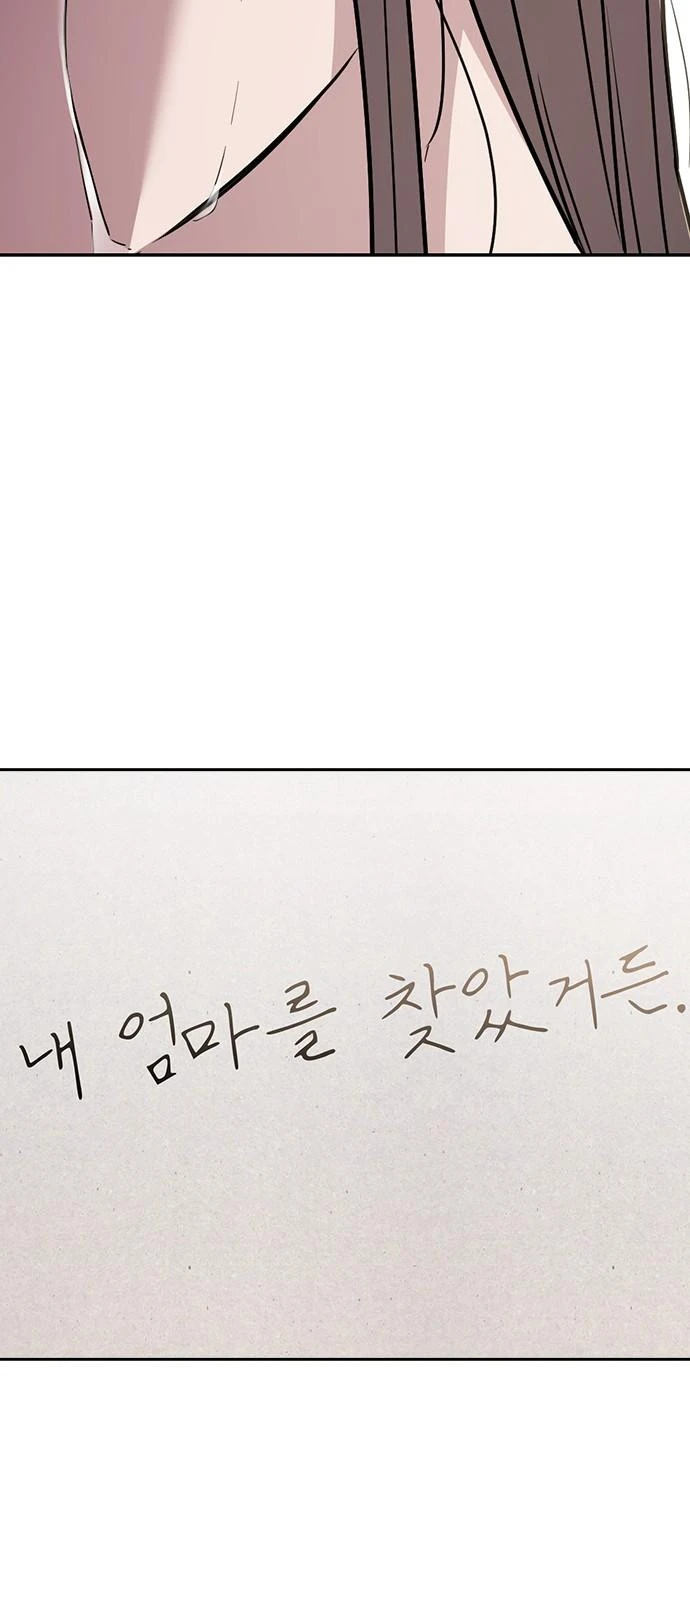 내 엄마를 찾았거든.